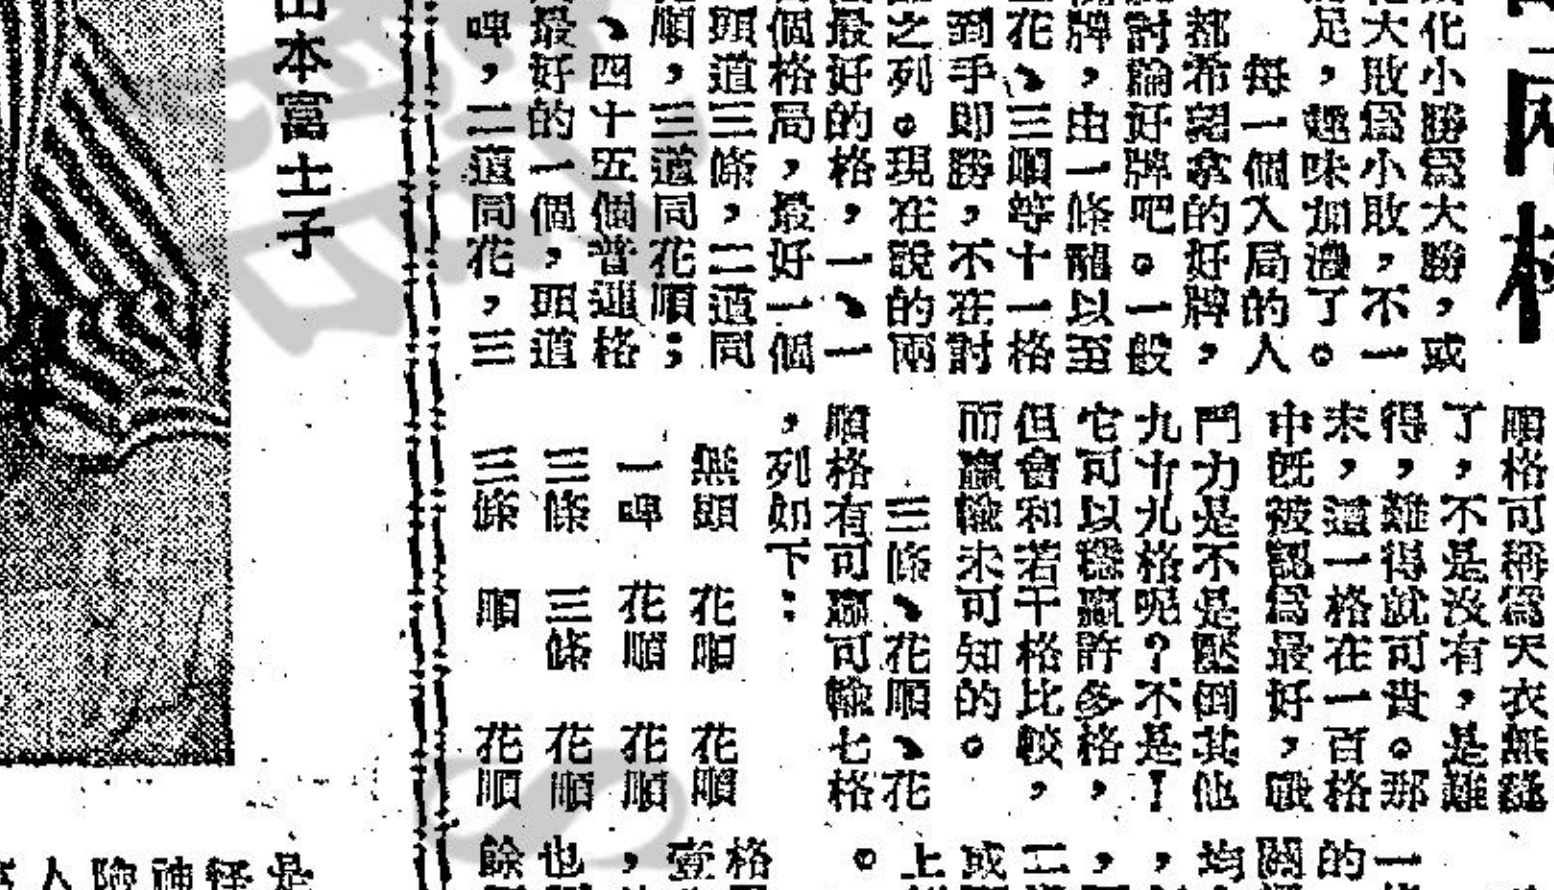 化小勝爲大勝，或
大敗爲小敗，不一
足，趣味加濃了。
每一個入局的人
都希望拿的好牌，
討論好牌吧。一般
牌，由一條龍以至
花、三順等十一格
到手即勝，不在討
之列。現在說的兩
最好的格，一、一
個格局，最好一個
頭道三條，二道同
順，三道同花順；
、四十五個普通格
最好的一個，頭道
啤，二道同花，三
順格可稱爲天衣無縫
了，不是沒有，是難
得，難得就可貴。那
末，這一格在一百格
中旣被認爲最好，戰
鬥力是不是壓倒其他
九十九格呢？不是！
它可以穩贏許多格，
但會和若干格比較，
而贏輸未可知的。
三條、花順、花
順格有可贏可輸七格
，列如下：
無頭　花順　花順
一啤　花順　花順
三條　三條　花順
三條　順　花順
一
的
關
均
，
，
二
或
上
。
格
壹
，
也
餘
山本富士子
是
怪
神
險
人